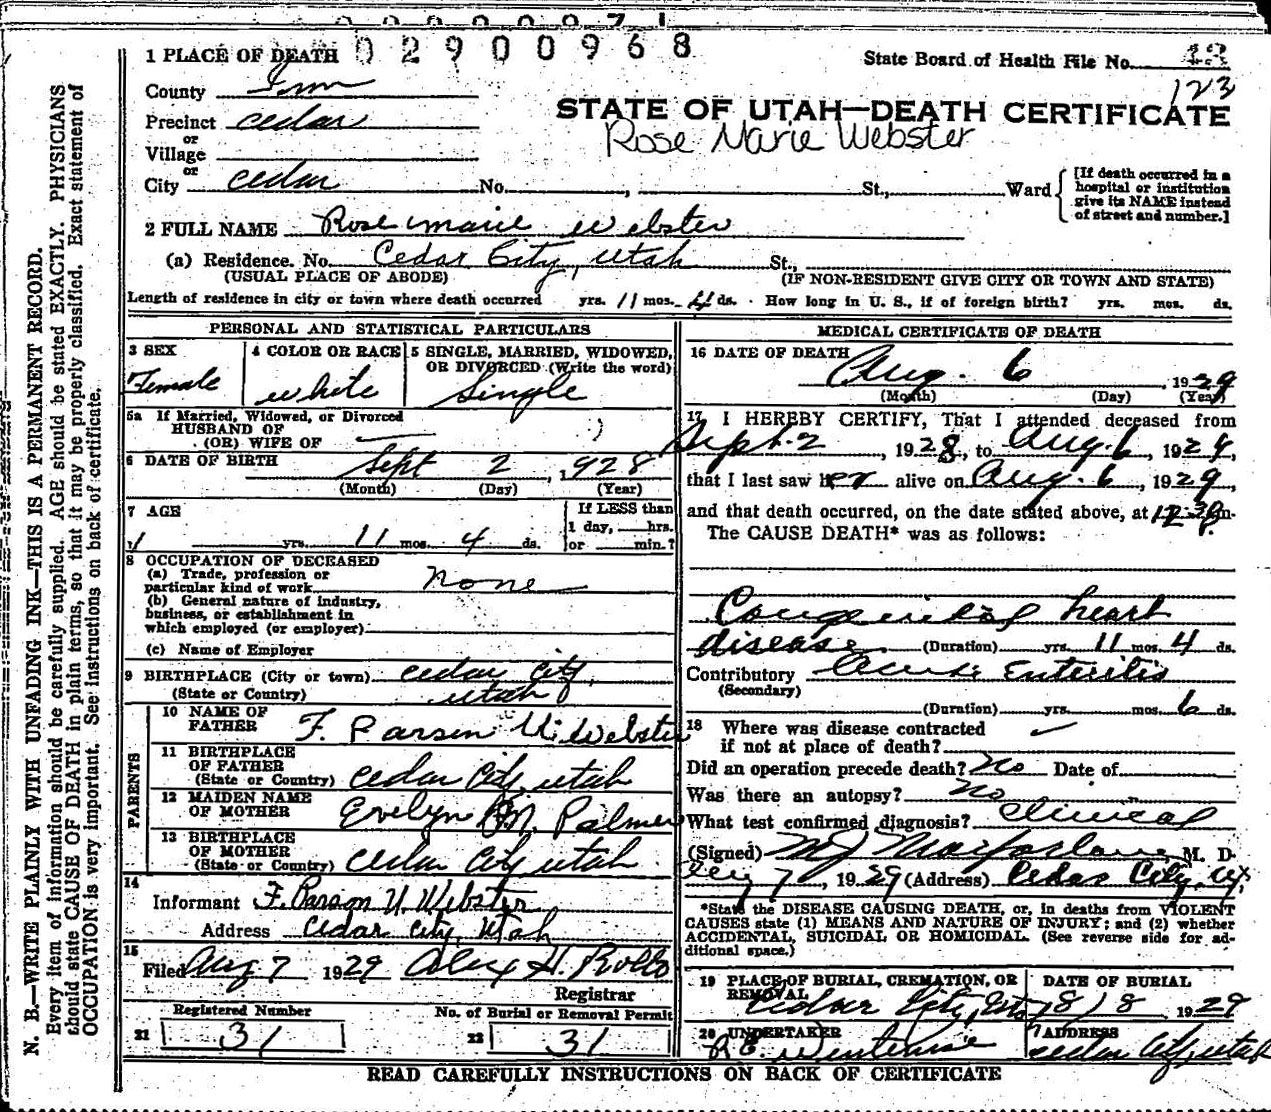 02900968
1 PLACE OF DEATH
State Board of Health File No. 43
123
County Iron
STATE OF UTAH—DEATH CERTIFICATE
Precinct Cedar
Rose Marie Webster
or
Village
or
City Cedar No. , St., Ward
[If death occurred in a
hospital or institution
give its NAME instead
of street and number.]
2 FULL NAME Rose marie Webster
(a) Residence. No. Cedar City, Utah St.,
(USUAL PLACE OF ABODE) (IF NON-RESIDENT GIVE CITY OR TOWN AND STATE)
Length of residence in city or town where death occurred yrs. 11 mos. 4 ds. How long in U. S., if of foreign birth? yrs. mos. ds.
PERSONAL AND STATISTICAL PARTICULARS
3 SEX
Female
4 COLOR OR RACE
white
5 SINGLE, MARRIED, WIDOWED,
OR DIVORCED (Write the word)
Single
5a If Married, Widowed, or Divorced
HUSBAND OF
(OR) WIFE OF
6 DATE OF BIRTH Sept 2, 928
(Month) (Day) (Year)
7 AGE
yrs. 11 mos. 4 ds.
If LESS than
1 day, hrs.
or min.?
8 OCCUPATION OF DECEASED
(a) Trade, profession or
particular kind of work none
(b) General nature of industry,
business, or establishment in
which employed (or employer)
(c) Name of Employer
9 BIRTHPLACE (City or town) Cedar City,
(State or Country) Utah
PARENTS
10 NAME OF
FATHER F. Parson U. Webster
11 BIRTHPLACE
OF FATHER
(State or Country) Cedar City, Utah
12 MAIDEN NAME
OF MOTHER Evelyn M. Palmer
13 BIRTHPLACE
OF MOTHER
(State or Country) Cedar City, Utah
14
Informant F. Parson U. Webster
Address Cedar City, Utah
15
Filed Aug 7 1929 Alex H. Rollo
Registrar
Registered Number
21 31
No. of Burial or Removal Permit
22 31
MEDICAL CERTIFICATE OF DEATH
16 DATE OF DEATH
Aug. 6, 1929
(Month) (Day) (Year)
17 I HEREBY CERTIFY, That I attended deceased from
Sept. 2, 1928, to Aug. 6, 1929,
that I last saw her alive on Aug. 6, 1929,
and that death occurred, on the date stated above, at m.
The CAUSE DEATH* was as follows:
Congenital heart
disease (Duration) yrs. 11 mos. 4 ds.
Contributory Acute Enteritis
(Secondary)
(Duration) yrs. mos. 6 ds.
18 Where was disease contracted
if not at place of death?
Did an operation precede death? No Date of
Was there an autopsy? No
What test confirmed diagnosis? Clinical
(Signed) M J Macfarlane, M. D.
7, 1929 (Address) Cedar City, Ut.
*State the DISEASE CAUSING DEATH, or, in deaths from VIOLENT
CAUSES state (1) MEANS AND NATURE OF INJURY; and (2) whether
ACCIDENTAL, SUICIDAL OR HOMICIDAL. (See reverse side for ad-
ditional space.)
19 PLACE OF BURIAL, CREMATION, OR
REMOVAL
Cedar City, Utah
DATE OF BURIAL
8/8 1929
20 UNDERTAKER
ADDRESS
Cedar City, Utah
READ CAREFULLY INSTRUCTIONS ON BACK OF CERTIFICATE
N. B.—WRITE PLAINLY WITH UNFADING INK—THIS IS A PERMANENT RECORD.
Every item of information should be carefully supplied. AGE should be stated EXACTLY. PHYSICIANS
should state CAUSE OF DEATH in plain terms, so that it may be properly classified. Exact statement of
OCCUPATION is very important. See instructions on back of certificate.